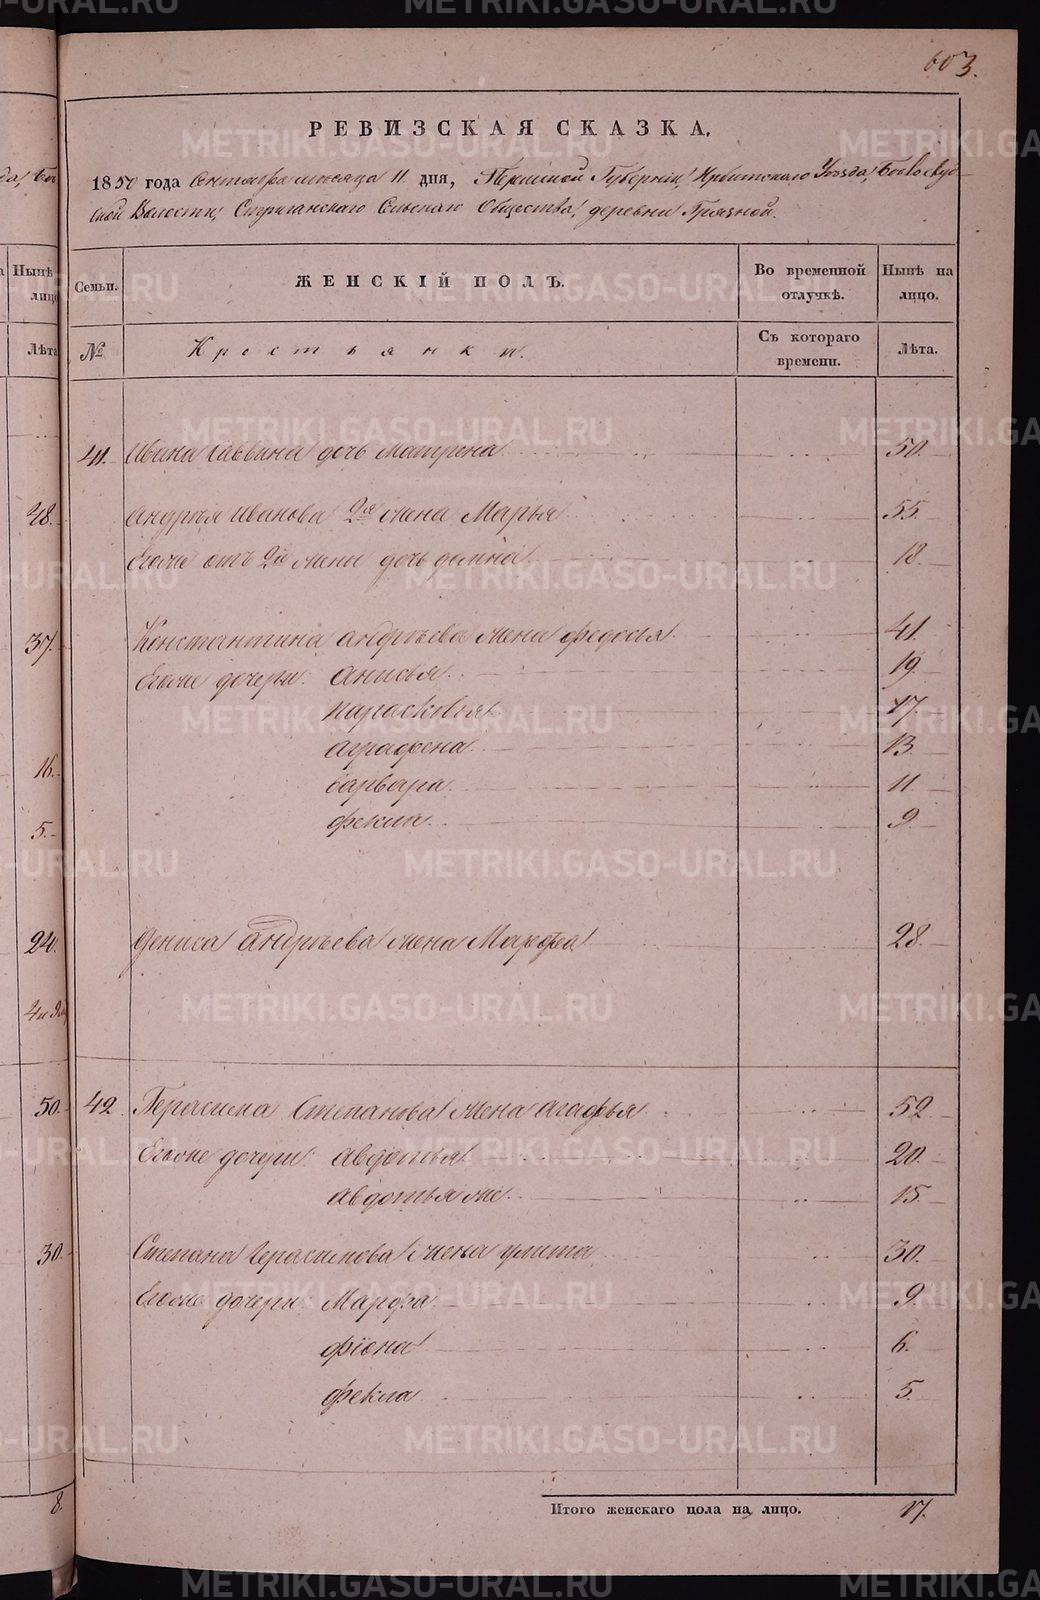 603.
РЕВИЗСКАЯ СКАЗКА.
1850 года Сентября месяца 11 дня, Пермской Губернiи, Ирбитскаго Уѣзда,
ской Волости, Стриганскаго Сельскаго Общества, деревни Грязной.
Семьи. ЖЕНСКIЙ ПОЛЪ. Во временной отлучкѣ. Нынѣ на лицо.
№ Крестьянки. Съ котораго времени. Лѣта.
41. Ивана Саввина дочь Матрена 50.
Андрея Иванова 2я жена Марья 55.
Его же отъ 2й жены дочь Домна 18.
Константина Андреева жена Федосья 41.
Его же дочери: Анисья 19.
Парасковья 17.
Аграфена 13.
Варвара 11.
Фекла 9.
Дениса Андреева жена Марфа 28.
42 Герасима Степанова жена Агафья 52.
Его же дочери: Авдотья 20.
Авдотья же 15.
Степана Герасимова жена Улита 30.
Его же дочери: Марфа 9.
Фiона 6.
Фекла 5.
Итого женскаго пола на лицо. 17.
Нынѣ
лицо
Лѣта
48.
37.
16.
5.
24.
50.
30.
8.
METRIKI.GASO-URAL.RU